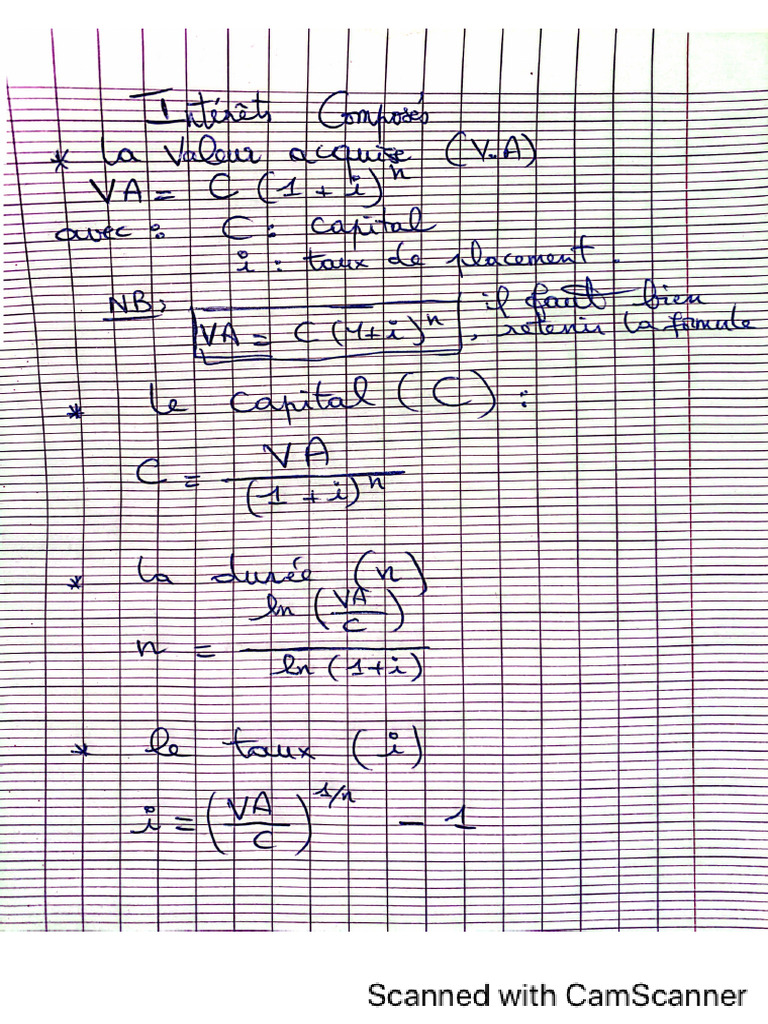 Intérêts Composés
* la Valeur acquise (V.A)
VA = C (1 + i)^n
avec : C : capital
i : taux de placement.
NB : VA = C (1+i)^n, il faut bien retenir la formule
* le capital (C) :
C = VA / (1 + i)^n
* la durée (n)
n = ln (VA / C) / ln (1+i)
* le taux (i)
i = (VA / C)^1/n - 1
Scanned with CamScanner